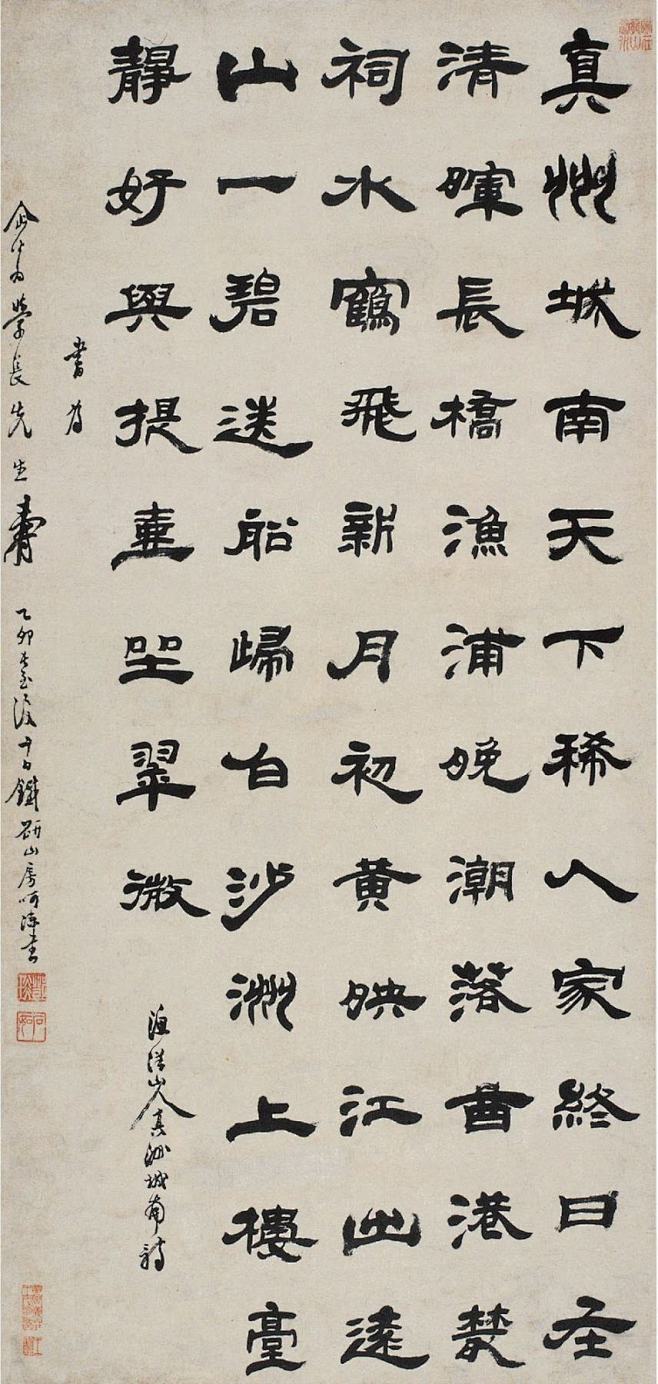 真州城南天下稀人家終日在
清暉長橋漁浦晚潮落曲港叢
祠水鶴飛新月初黃映江出遠
山一碧送船歸白沙洲上樓臺
靜好與提壺坐翠微
漁洋山人真州城南詩
書為
學長先生壽 乙卯長至後十日鐵研山房呵凍書